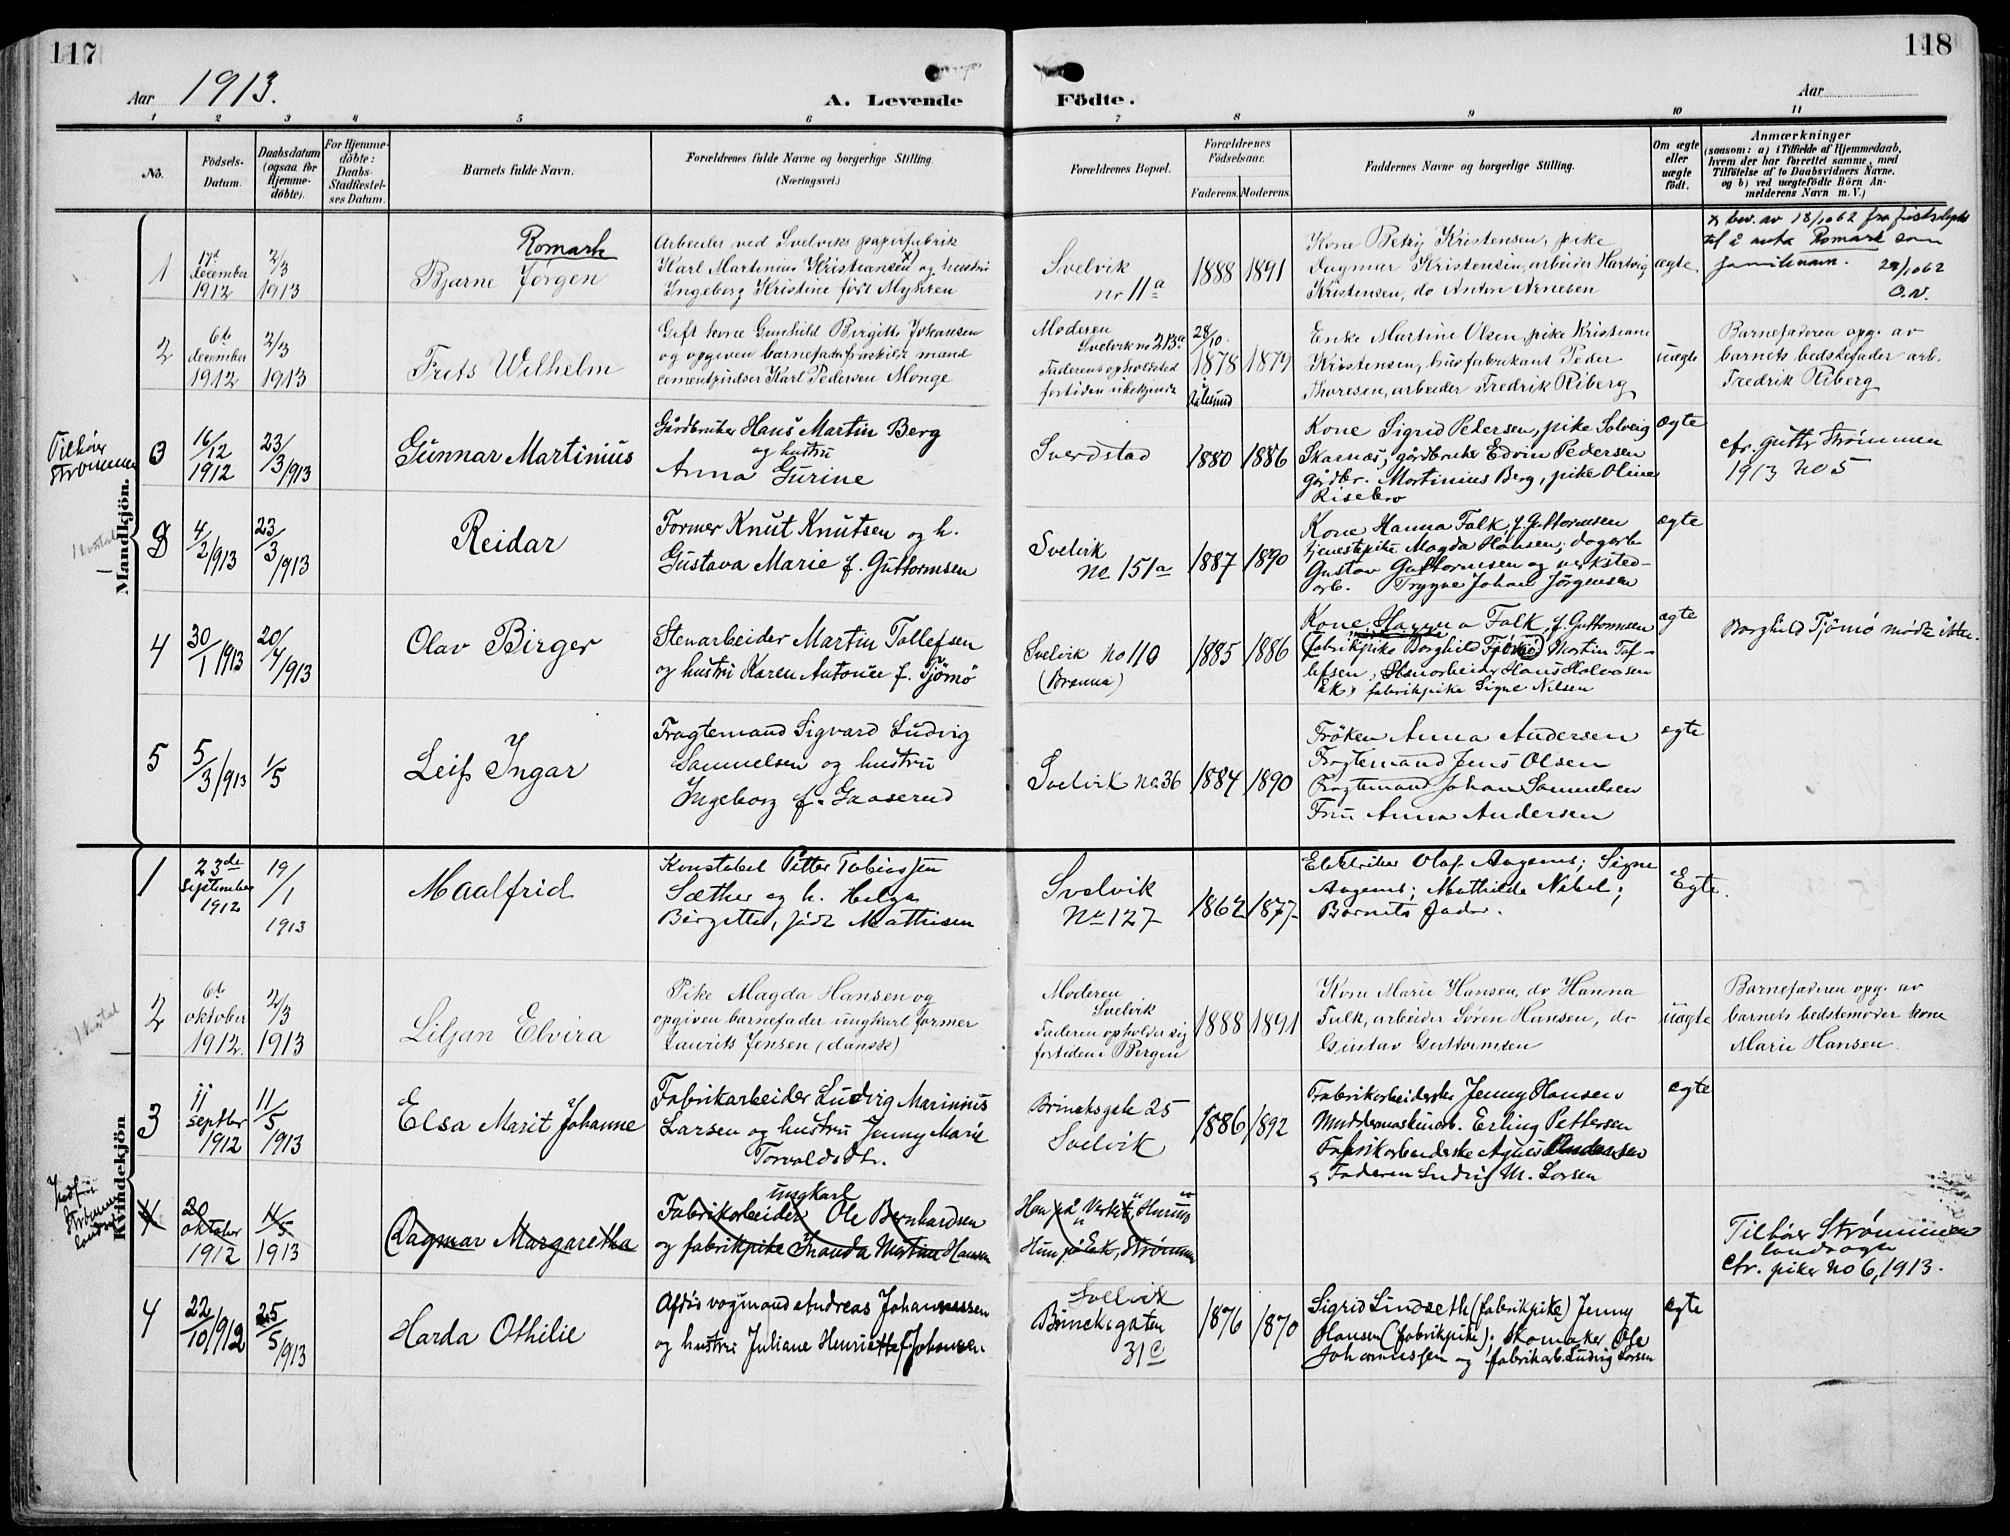 117
118
Aar 1913.
A. Levende Födte.
Aar
1 2 3 4 5 6 7 8 9 10 11
No.
Födsels-
Datum.
Daabsdatum
(ogsaa for
Hjemme-
döbte).
For Hjemme-
döbte:
Daabs-
Stadfæstel-
ses Datum.
Barnets fulde Navn.
Forældrenes fulde Navne og borgerlige Stilling.
(Næringsvei.)
Forældrenes Bopæl.
Forældrenes
Födselsaar.
Faderens. Moderens.
Faddernes Navne og borgerlige Stilling.
Om ægte
eller
uægte
født.
Anmærkninger
(saasom: a) i Tilfælde af Hjemmedaab,
hvem der har forrettet samme, med
Tilföielse af to Daabsvidners Navne.
og b) ved uægtefödte Börn An-
melderens Navn m. V.)
Mandkjön.
1
17de
december
1912
2/3
1913
Romark
Bjarne Jörgen
Arbeider ved Svelviks papirfabrik
Karl Martinius Kristiansen x) og hustru
Ingeborg Kristine født Myhren
Svelvik
nr 11a
1888
1891
Kone Betzy Kristensen, pike
Dagmar Kristensen, arbeider Hartvig
Kristensen, do Anton Arnesen
ægte
x bev. av 18/10 62 fra
til å anta Romark som
familienavn. 29/10 62
O.N.
2
6te
december
1912
2/3
1913
Frits Wilhelm
Gift kone Gunhild Birgitte Johansen
og opgiven barnefader fraskilt mand
Karl Pedersen Monge
Moderen
Svelvik no 213a
Faderens opholdsted
fortiden ubekjendt
28/10
1878
i
Aalesund
1879
Enke Martine Olsen, pike Kristiane
Kristensen, husfabrikant Peder
Thoresen, arbeider Fredrik Riberg
uægte
Barnefaderen opg. av
barnets bedstefader arb.
Fredrik Riberg
Tilhör
Strømmen
16/12
1912
23/3/913
Gunnar Martinius
Gårdbruker Hans Martin Berg
og hustru
Anna Gurine
Sverdstad
1880
1886
Kone Sigrid Pedersen, pike Solveig
Skarnæs, gårdbruker Edvin Pedersen
gårdbr. Martinius Berg, pike Oline
Risebro
ægte
cfr. gutter Strømmen
1913 no 5
3
4/2/913
23/3/913
Reidar
Former Knut Knutsen og h.
Gustava Marie f. Guttormsen
Svelvik
No 151a
1887
1890
Kone Hanna Falk, f. Guttormsen
tjenestepike Magda Hansen; dagarb.
Gustav Guttormsen og verksted-
arb. Trygve Johan Jörgensen
ægte
4
30/1/913
20/4/913
Olav Birger
Stenarbeider Martin Tollefsen
og hustru Karen Antonie f. Tjömö
Svelvik No 110
(Brenna)
1885
1886
Kone Hanna Falk, f. Guttormsen
fabrikpike Borghild Tjömö, Martin Tol-
lefsen, Stenarbeider Hans Halvorsen
Ek, fabrikpike Signe Nilsen
ægte
Borghild Tjömö mödte ikke.
5
5/3/913
1/5
Leif Ingar
Fragtemand Sigvard Ludvig
Samuelsen og hustru
Ingeborg f. Gaaserud
Svelvik no. 36
1884
1890
Fröken Anna Andersen
Fragtemand Jens Olsen
Fragtemand Johan Samuelsen
Fru Anna Andersen
ægte
Kvindekjön
1
23de
September
1912
19/1
1913
Maalfrid
Konstabel Petter Tobiassen
Sæther og h. Helga
Birgitte, født Mathisen
Svelvik
No 127
1862
1877
Elektriker Olaf Aagenes; Signe
Aagenes; Mathilde Nabel;
Barnets fader.
Egte.
2
6te
oktober
1912
2/3
1913
Liljan Elvira
Pike Magda Hansen og
opgiven barnefader ungkarl former
Laurits Jensen (dansk)
Moderen
Svelvik
Faderen opholder sig
fortiden i Bergen
1888
1891
Kone Marie Hansen, do Hanna
Falk, arbeider Sören Hansen, do
Gustav Guttormsen
uægte
Barnefaderen opg. av
barnets bedstemoder kone
Marie Hansen.
3
11
Septbr
1912
11/5
1913
Elsa Marit Johanne
Fabrikarbeider Ludvig Marinius
Larsen og hustru Jenny Marie
Torvaldsdtr.
Brincksgate 25
Svelvik
1886
1892
Fabrikarbeiderske Jenny Hansen
Muddermaskinarb. Erling Pettersen
Fabrikarbeiderske Agnes Andersen
& Faderen Ludvig M. Larsen
ægte
4
20
oktober
1912
11/5
1913
Dagmar Margaretha
ungkarl
Fabrikarbeider Ole Bernhardsen
og fabrikpike Martine Hansen
Han på Verket, Hurum
Hun på Ek, Strömmen
Tilhörer Strömmen
landsogn
cfr. piker no 6, 1913.
4
22/10/912
25/5/913
Harda Othilie
Afdøs vognmand Andreas Johannessen
og hustru Juliane Henriette f. Johansen
Svelvik
Brincksgaten
31c
1876
1870
Sigrid Lindseth (fabrikpike) Jenny
Hansen (fabrikpike); Skomaker Ole
Johannessen og fabrikarb. Ludvig Larsen
ægte